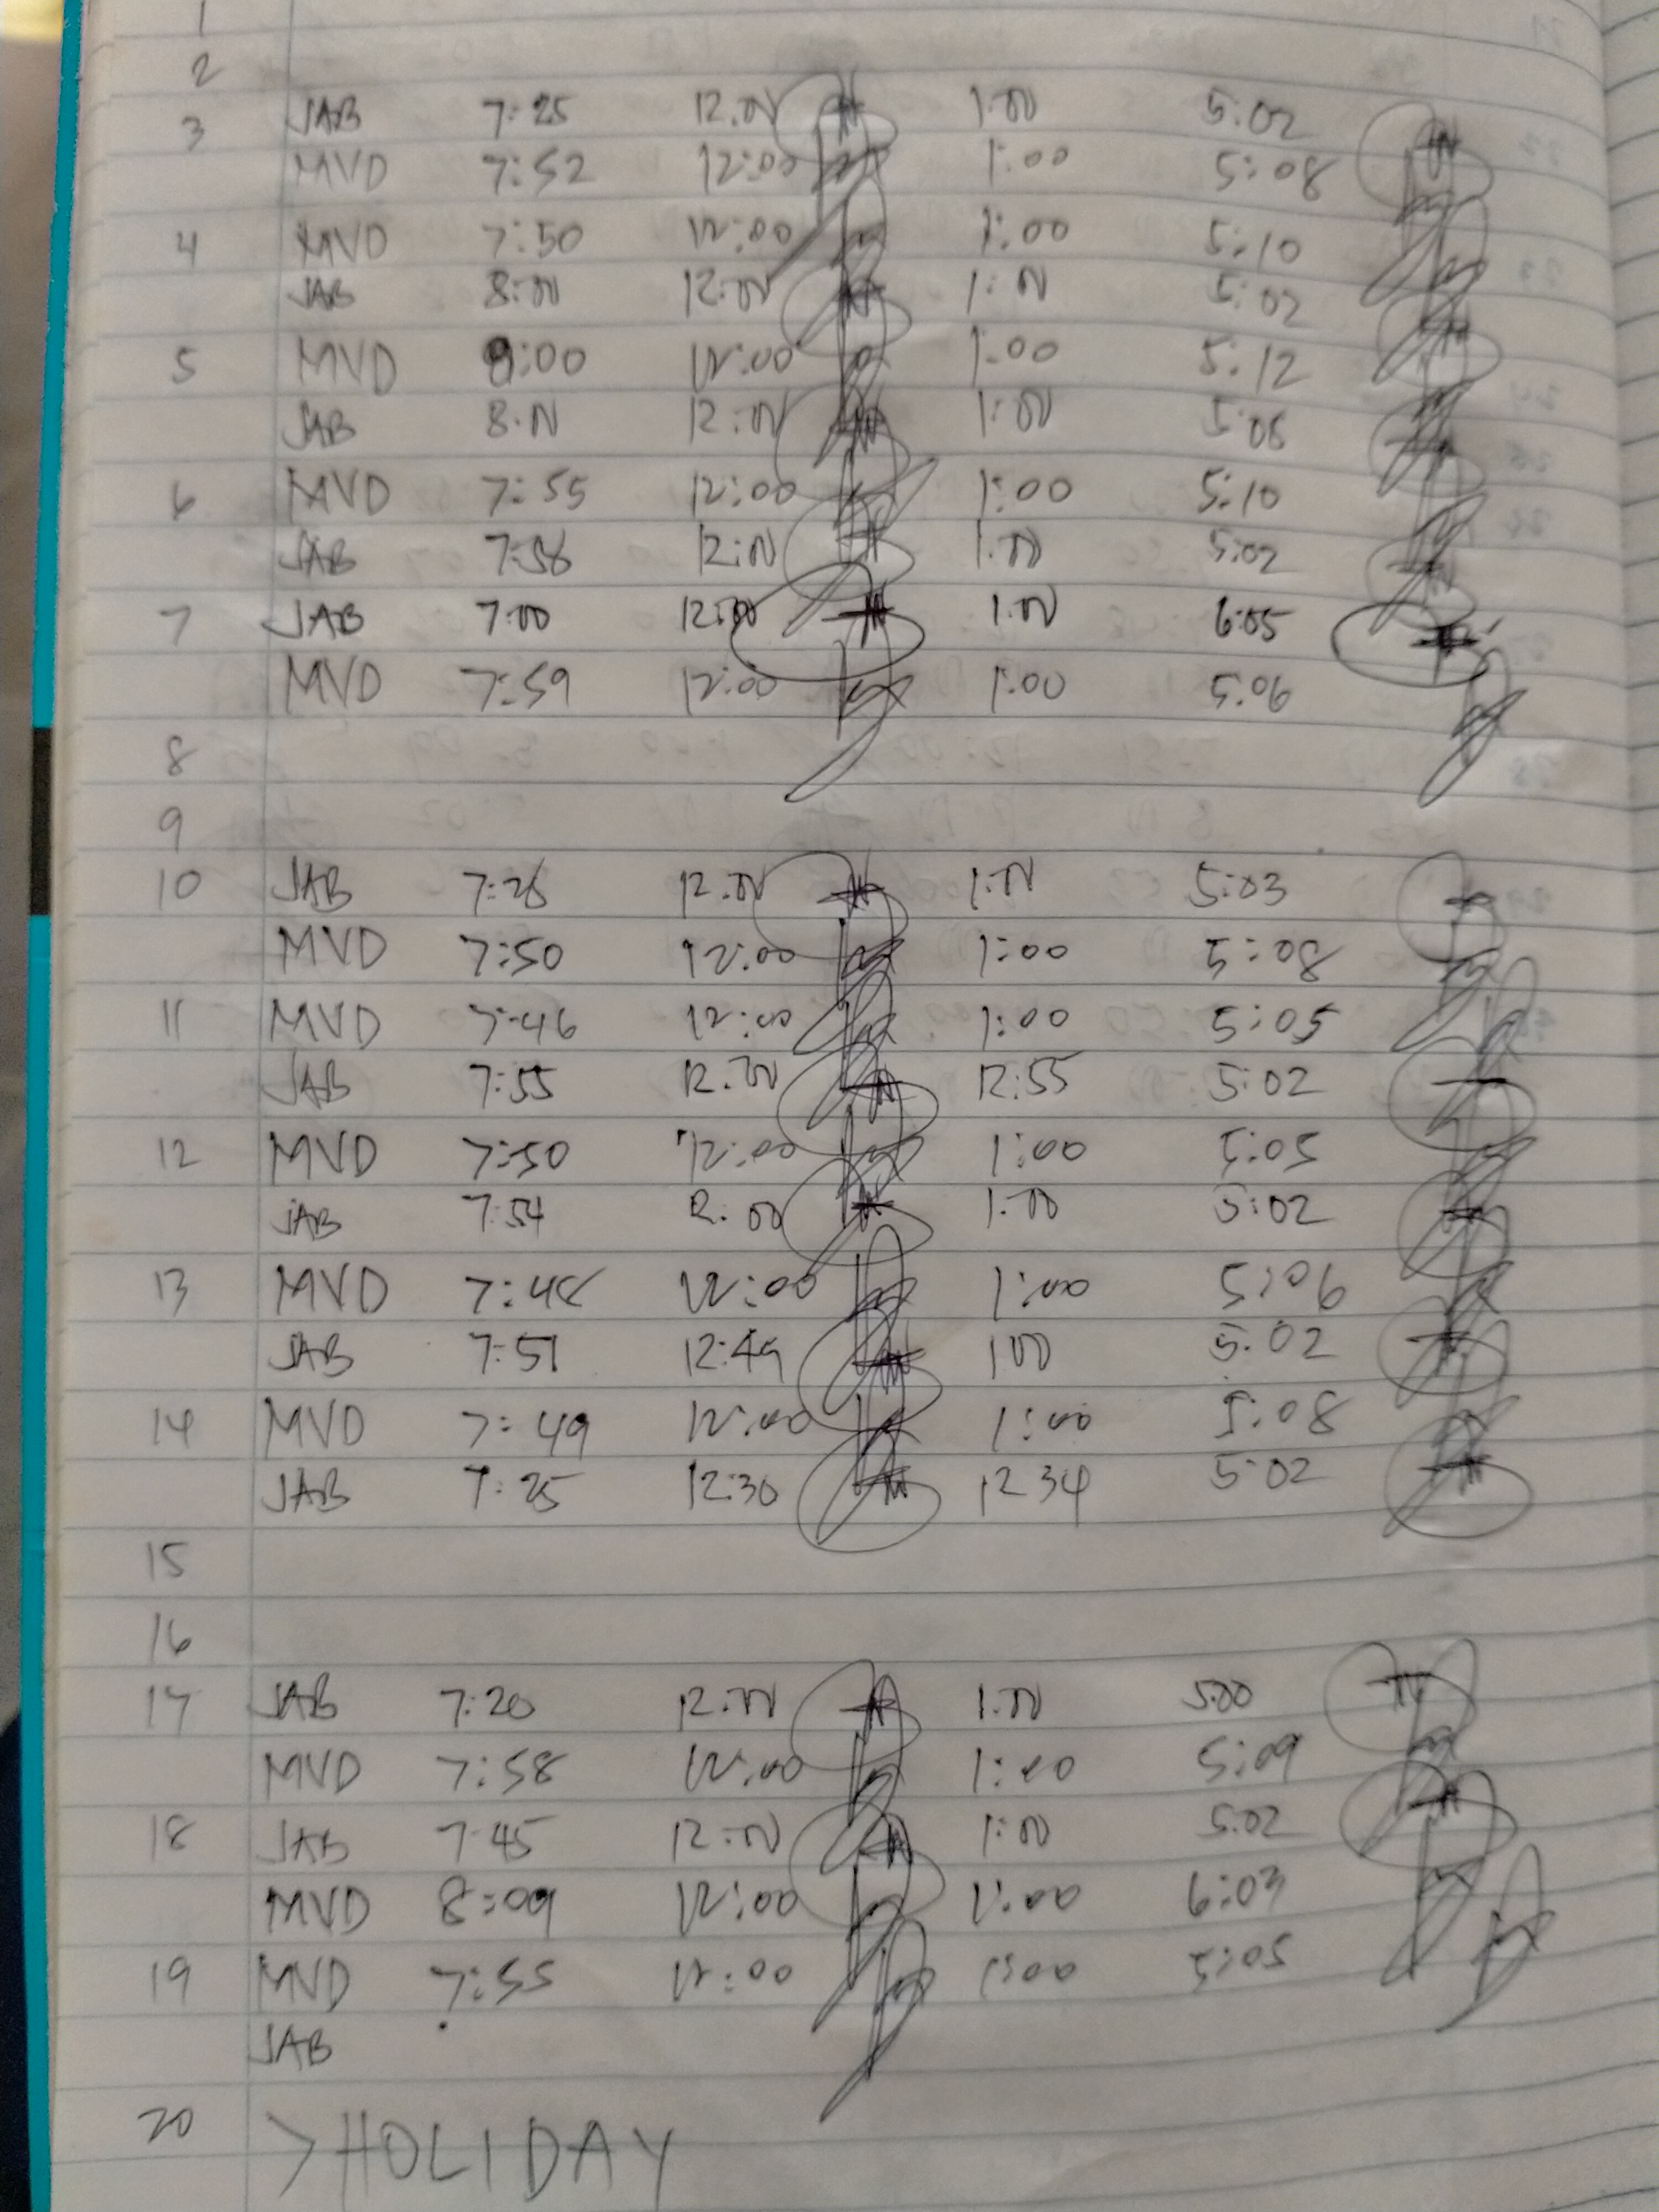 1
2
3 JAB 7:25 12:00 1:00 5:02
MVD 7:52 12:00 1:00 5:08
4 MVD 7:50 12:00 1:00 5:10
JAB 8:00 12:00 1:00 5:02
5 MVD 12:00 1-00 5:12
JAB 8:00 12:00 1:00
6 MVD 7:55 12:00 1:00 5:10
JAB 7:58 12:00 1:00 5:02
7 JAB 7:00 12:00 1:00 6:05
MVD 7:59 12:00 1:00 5:06
8
9
10 JAB 12:00 1:00 5:03
MVD 7:50 12:00 1:00 5:08
11 MVD 7:46 12:00 1:00 5:05
JAB 7:55 12:00 12:55 5:02
12 MVD 7:50 12:00 1:00 5:05
JAB 7:54 12:00 1:00 5:02
13 MVD 7:48 12:00 1:00 5:06
JAB 7:51 12:49 1 00 5:02
14 MVD 7:49 12:00 1:00 5:08
JAB 7:25 12:30 12 34 5:02
15
16
17 JAB 7:20 12:00 1:00 5:00
MVD 7:58 12:00 1:00 5:09
18 JAB 7:45 12:00 1:00 5:02
MVD 8:09 12:00 1:00 6:03
19 MVD 7:55 12:00 1:00 5:05
JAB
20 >HOLIDAY